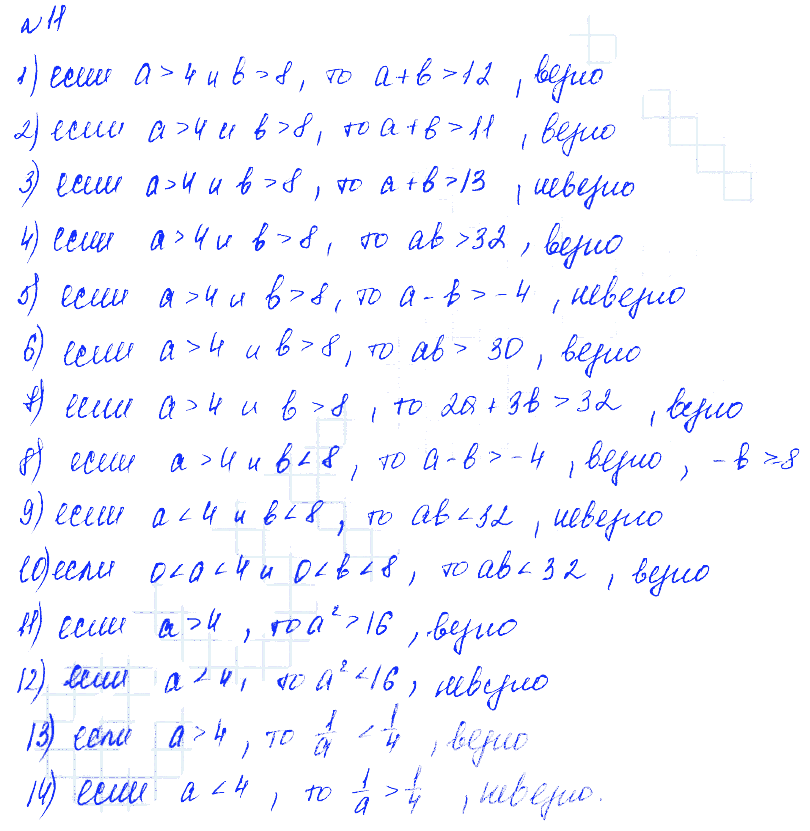 № 11
1) если a > 4 и b > 8, то a + b > 12, верно
2) если a > 4 и b > 8, то a + b > 11, верно
3) если a > 4 и b > 8, то a + b > 13, неверно
4) если a > 4 и b > 8, то ab > 32, верно
5) если a > 4 и b > 8, то a - b > -4, неверно
6) если a > 4 и b > 8, то ab > 30, верно
7) если a > 4 и b > 8, то 2a + 3b > 32, верно
8) если a > 4 и b < 8, то a - b > -4, верно, -b > -8
9) если a < 4 и b < 8, то ab < 32, неверно
10) если 0 < a < 4 и 0 < b < 8, то ab < 32, верно
11) если a > 4, то a² > 16, верно
12) если a < 4, то a² < 16, неверно
13) если a > 4, то 1/a < 1/4, верно
14) если a < 4, то 1/a > 1/4, неверно.